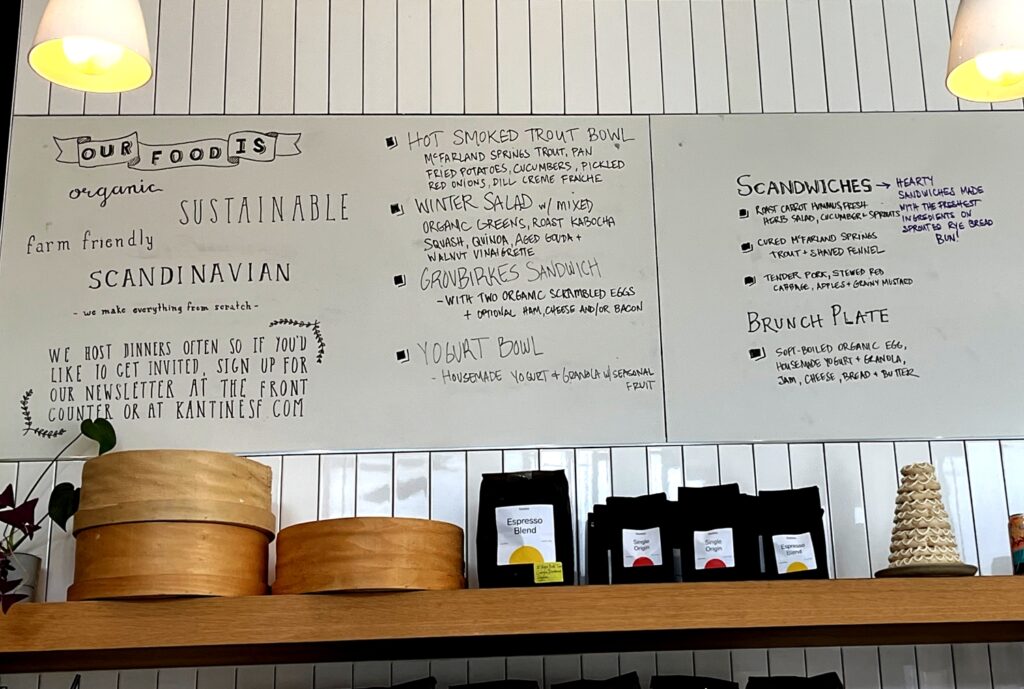 OUR FOOD IS
organic
SUSTAINABLE
farm friendly
SCANDINAVIAN
- we make everything from scratch -
WE HOST DINNERS OFTEN SO IF YOU'D
LIKE TO GET INVITED, SIGN UP FOR
OUR NEWSLETTER AT THE FRONT
COUNTER OR AT KANTINESF.COM
HOT SMOKED TROUT BOWL
McFARLAND SPRINGS TROUT, PAN
FRIED POTATOES, CUCUMBERS, PICKLED
RED ONIONS, DILL CREME FRAICHE
WINTER SALAD w/ MIXED
ORGANIC GREENS, ROAST KABOCHA
SQUASH, QUINOA, AGED GOUDA +
WALNUT VINAIGRETTE
GROVBIRKES SANDWICH
- WITH TWO ORGANIC SCRAMBLED EGGS
+ OPTIONAL HAM, CHEESE AND/OR BACON
YOGURT BOWL
- HOUSEMADE YOGURT + GRANOLA w/ SEASONAL
FRUIT
SCANDWICHES → HEARTY
SANDWICHES MADE
WITH THE FRESHEST
INGREDIENTS ON
SPROUTED RYE BREAD
BUN!
ROAST CARROT HUMMUS, FRESH
HERB SALAD, CUCUMBER + SPROUTS
CURED McFARLAND SPRINGS
TROUT + SHAVED FENNEL
TENDER PORK, STEWED RED
CABBAGE, APPLES + GRAINY MUSTARD
BRUNCH PLATE
SOFT-BOILED ORGANIC EGG,
HOUSEMADE YOGURT + GRANOLA,
JAM, CHEESE, BREAD + BUTTER
Espresso
Blend
Single
Origin
Single
Origin
Espresso
Blend